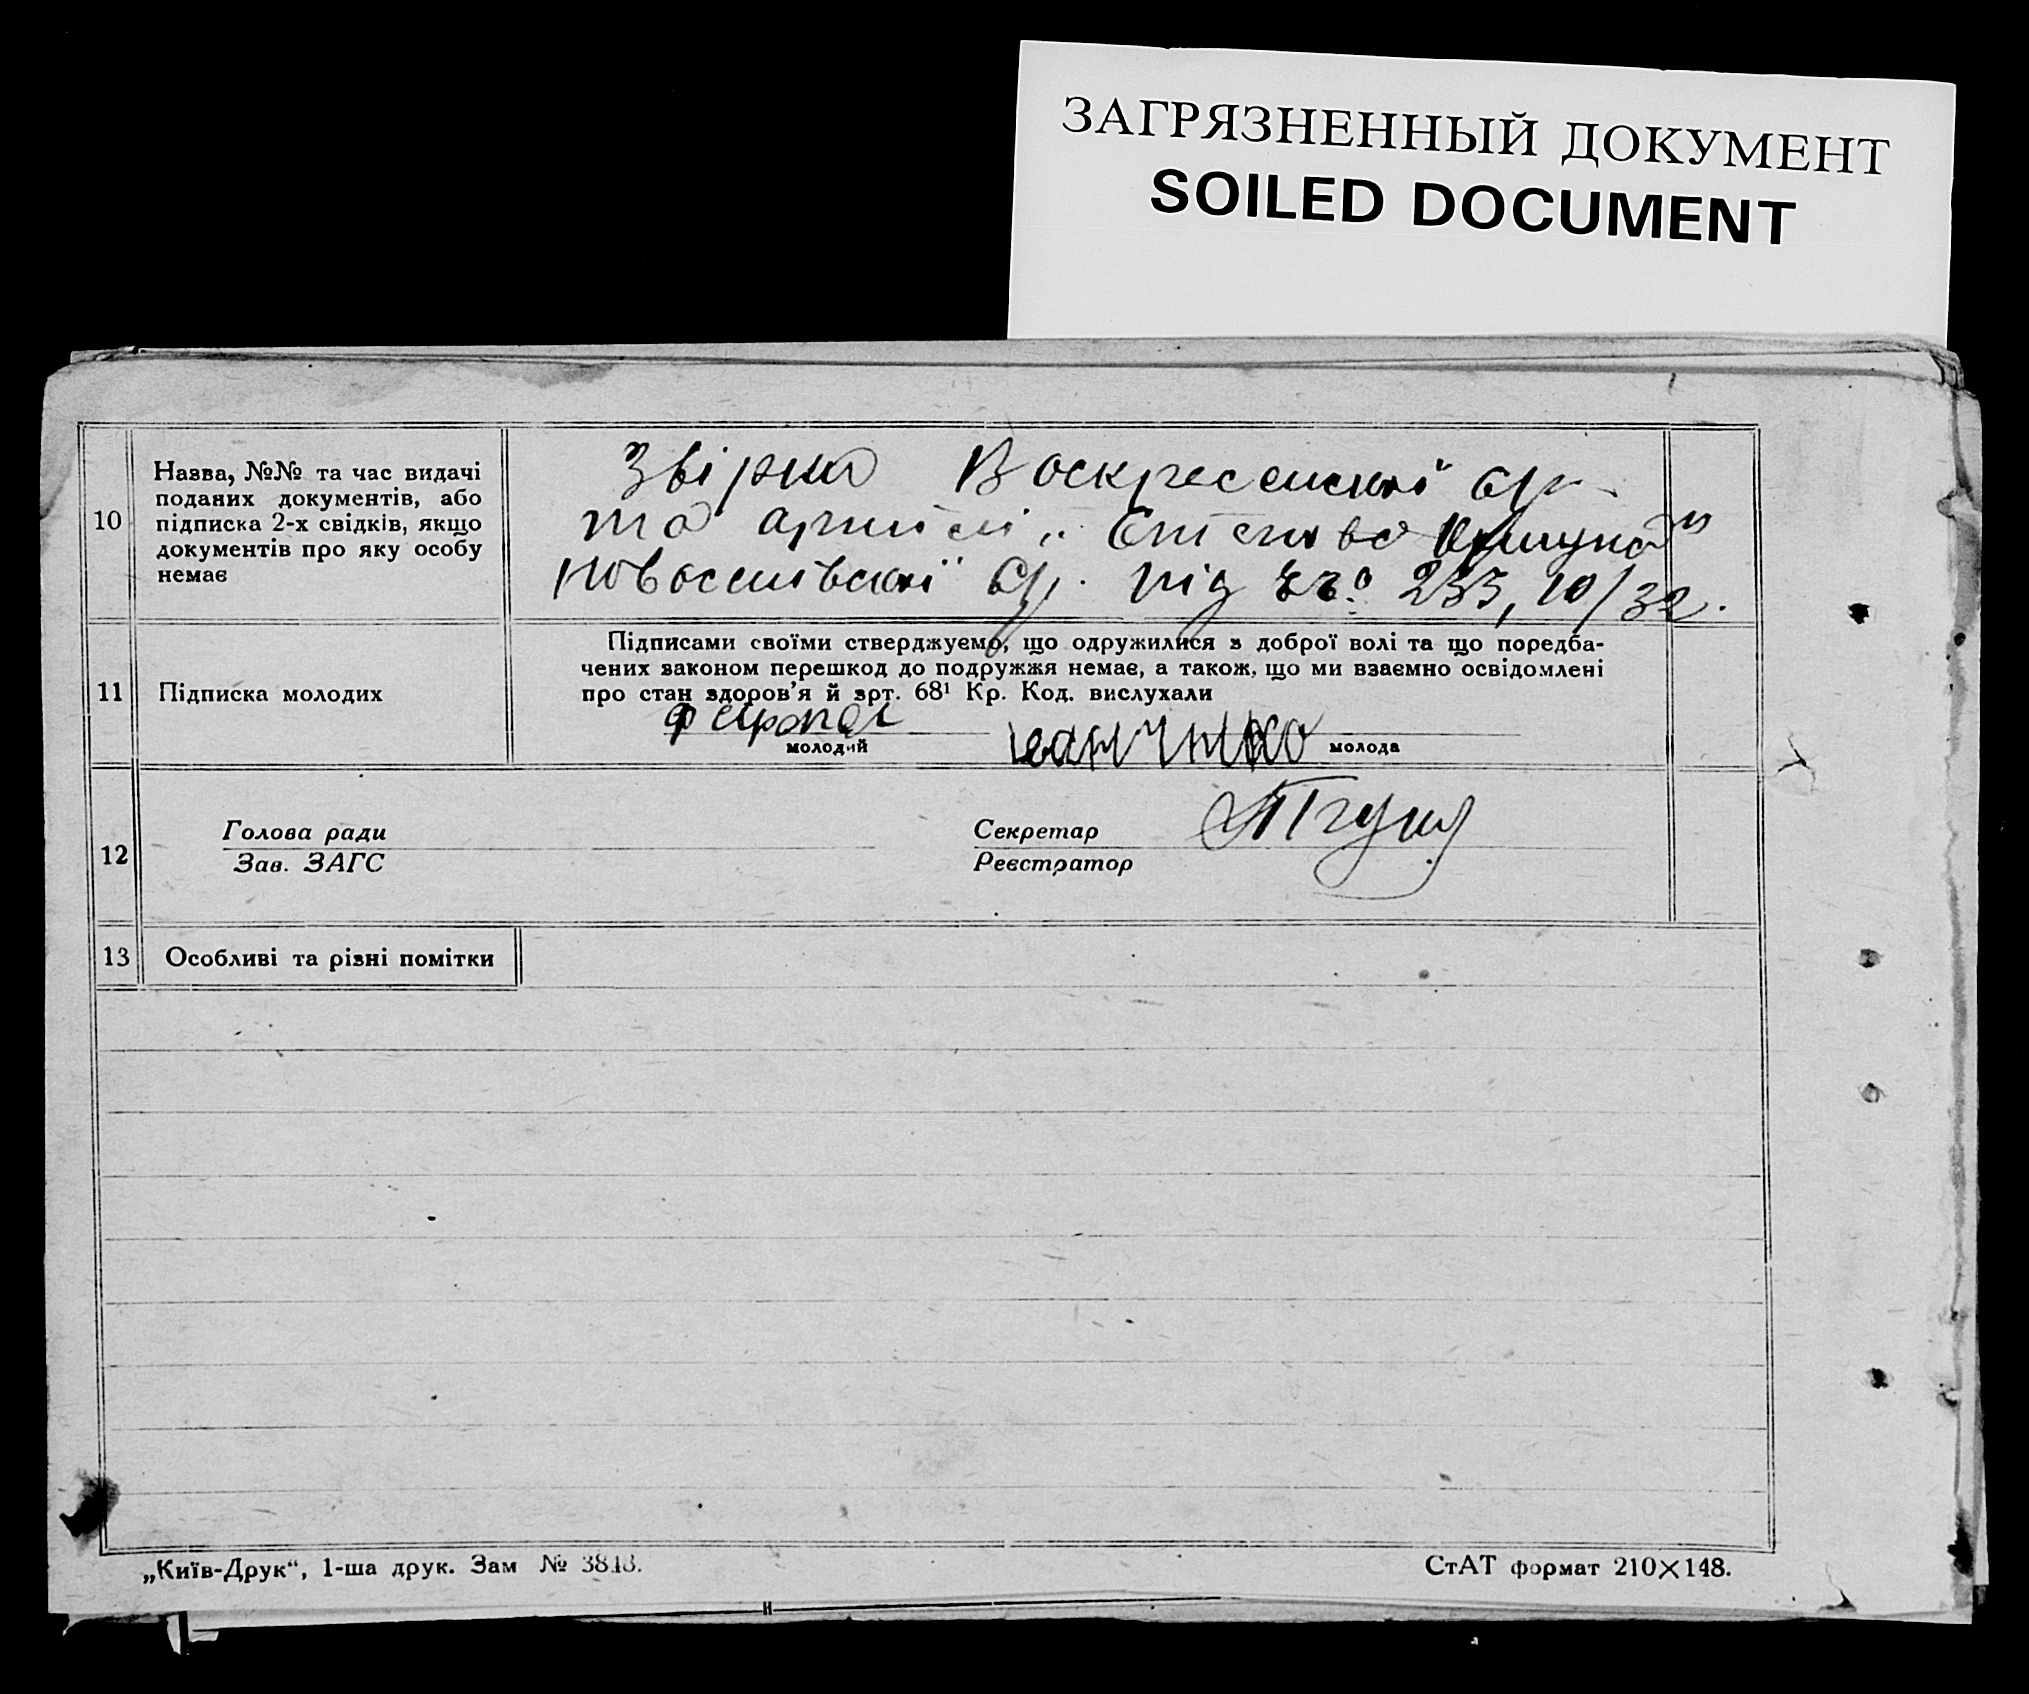 ЗАГРЯЗНЕННЫЙ ДОКУМЕНТ
SOILED DOCUMENT
10
Назва, №№ та час видачі
поданих документів, або
підписка 2-х свідків, якщо
документів про яку особу
немає
Воскресенської с/р
та артілі „
Новоселівської с/р. під 233, 10/32.
11
Підписка молодих
Підписами своїми стверджуємо, що одружилися з доброї волі та що поредба-
чених законом перешкод до подружжя немає, а також, що ми взаємно освідомлені
про стан здоров'я й зрт. 68¹ Кр. Код. вислухали
молодий
молода
12
Голова ради
Зав. ЗАГС
Секретар
Реєстратор
13
Особливі та різні помітки
„Київ-Друк“, 1-ша друк. Зам №
СтАТ формат 210×148.